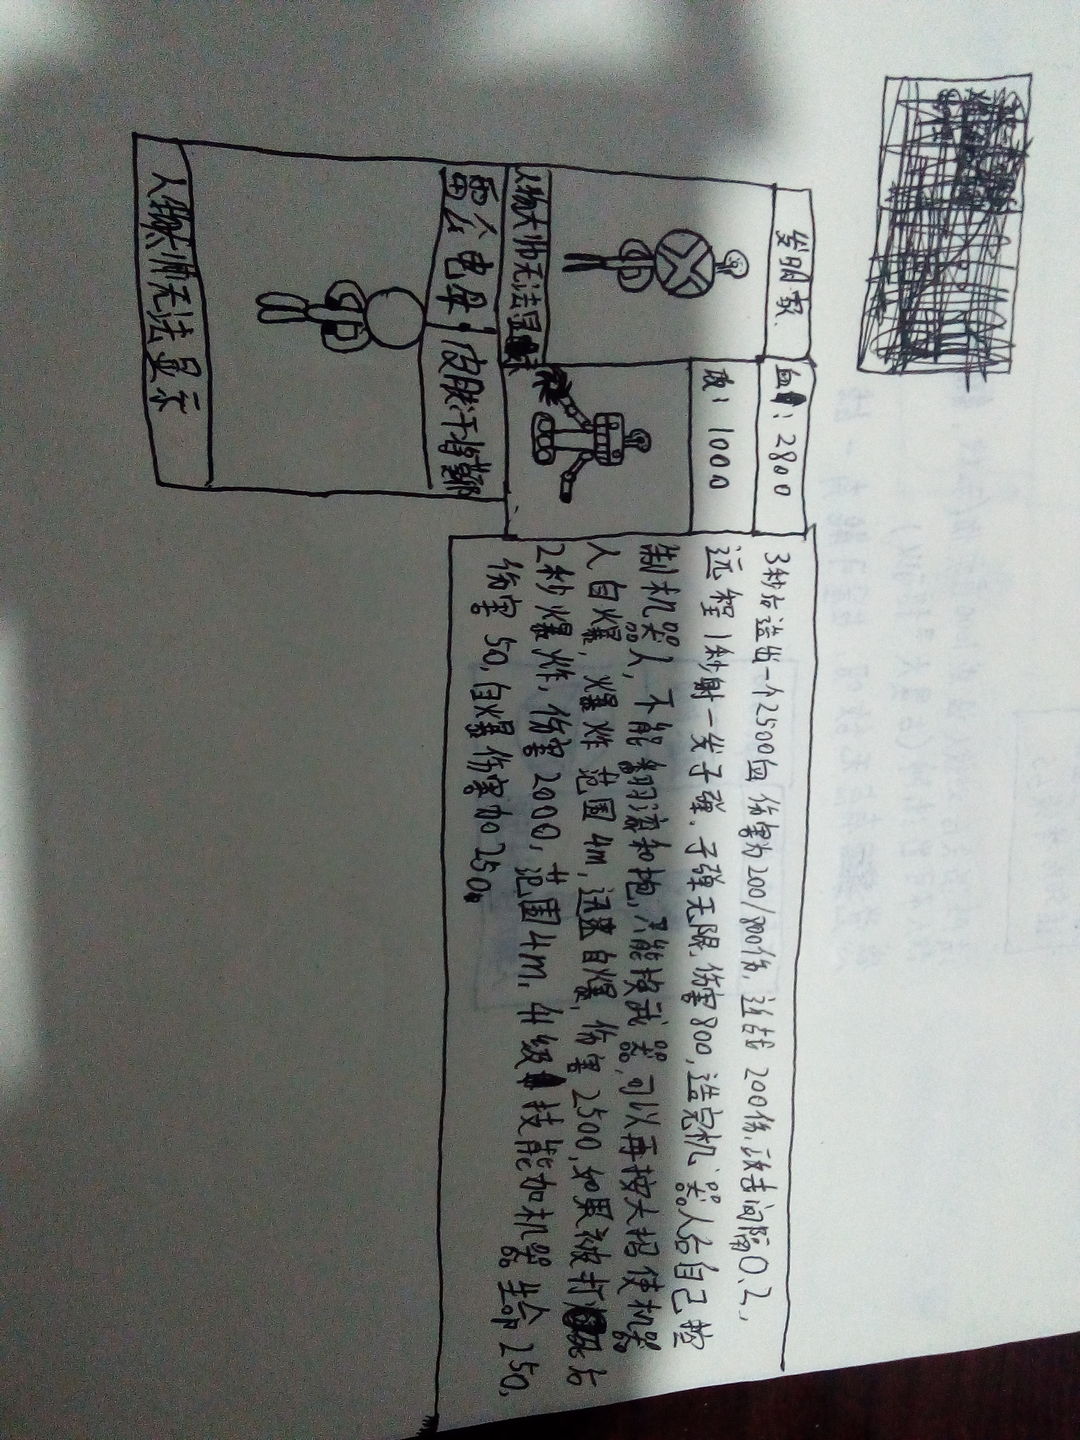 发明家
血:2800
1000
人物太帅无法显
雷公电母
皮肤
人物太帅无法显示
3秒后造出一个2500血 伤害为200/800伤,近战 200伤,攻击间隔0.2,
远程1秒射一发子弹,子弹无限,伤害800,造完机器人后自己控
制机器人,不能翻滚和抱,只能换武器,可以再按大招使机器
人自爆,爆炸范围4m,迅速自爆,伤害2500,如果被打死后
2秒爆炸,伤害2000,范围4m,升级技能加机器生命250,
伤害50,自爆伤害加250